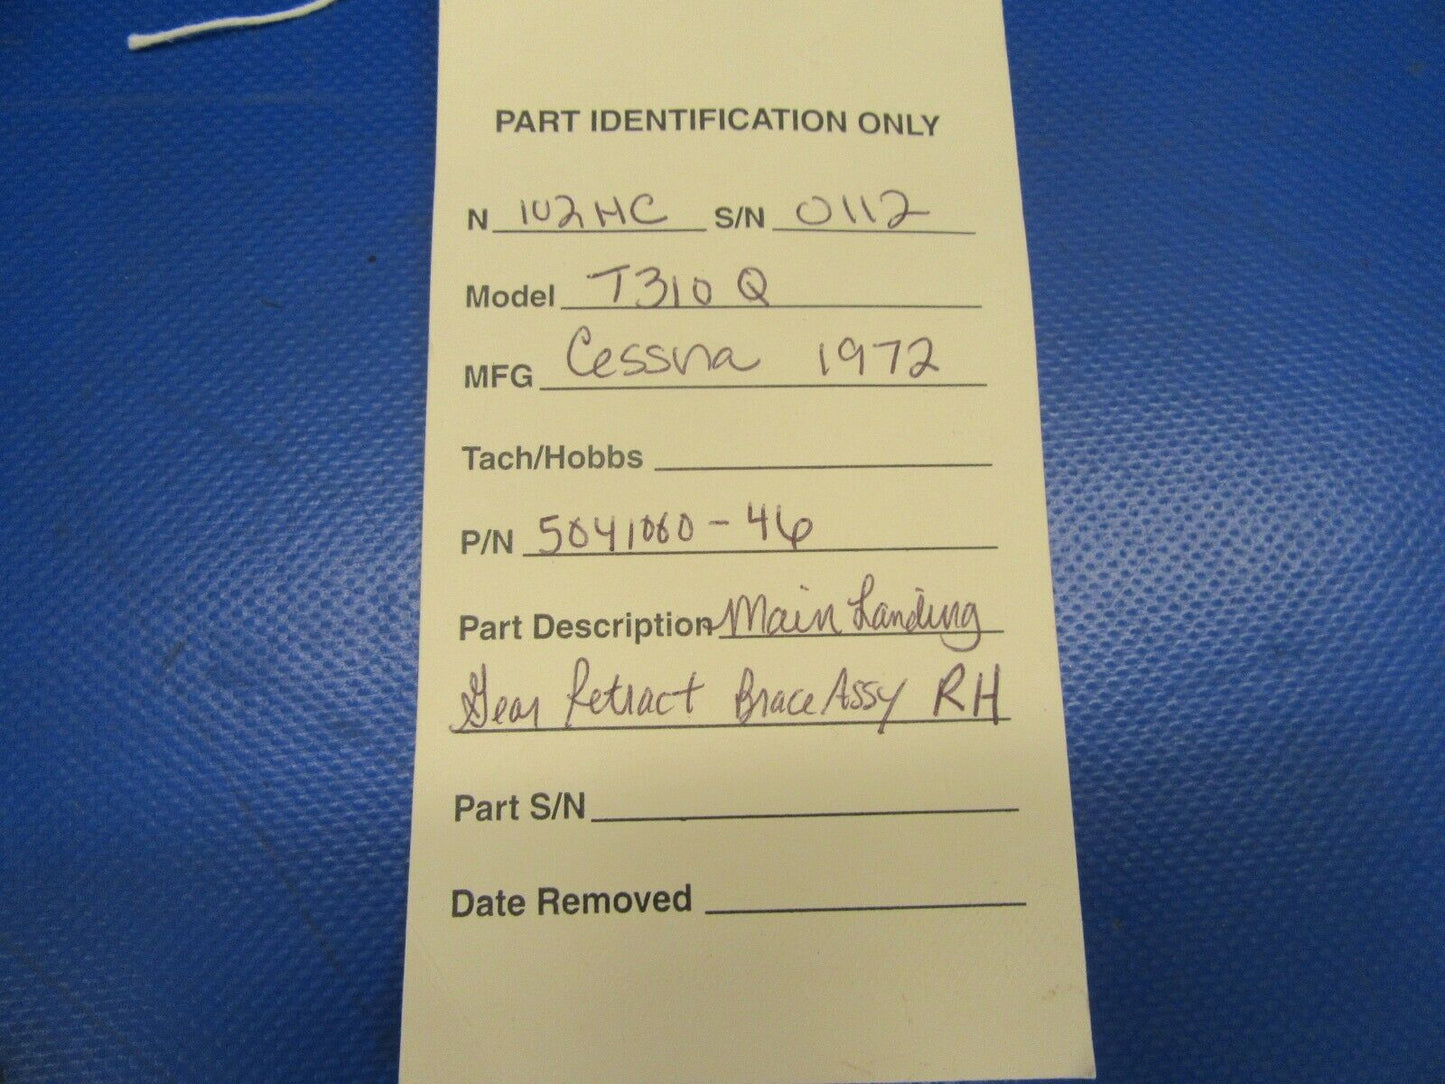 PART IDENTIFICATION ONLY
N 102HC S/N 0112
Model T310 Q
MFG Cessna 1972
Tach/Hobbs
P/N 5041060-46
Part Description Main Landing
Gear Retract Brace Assy RH
Part S/N
Date Removed